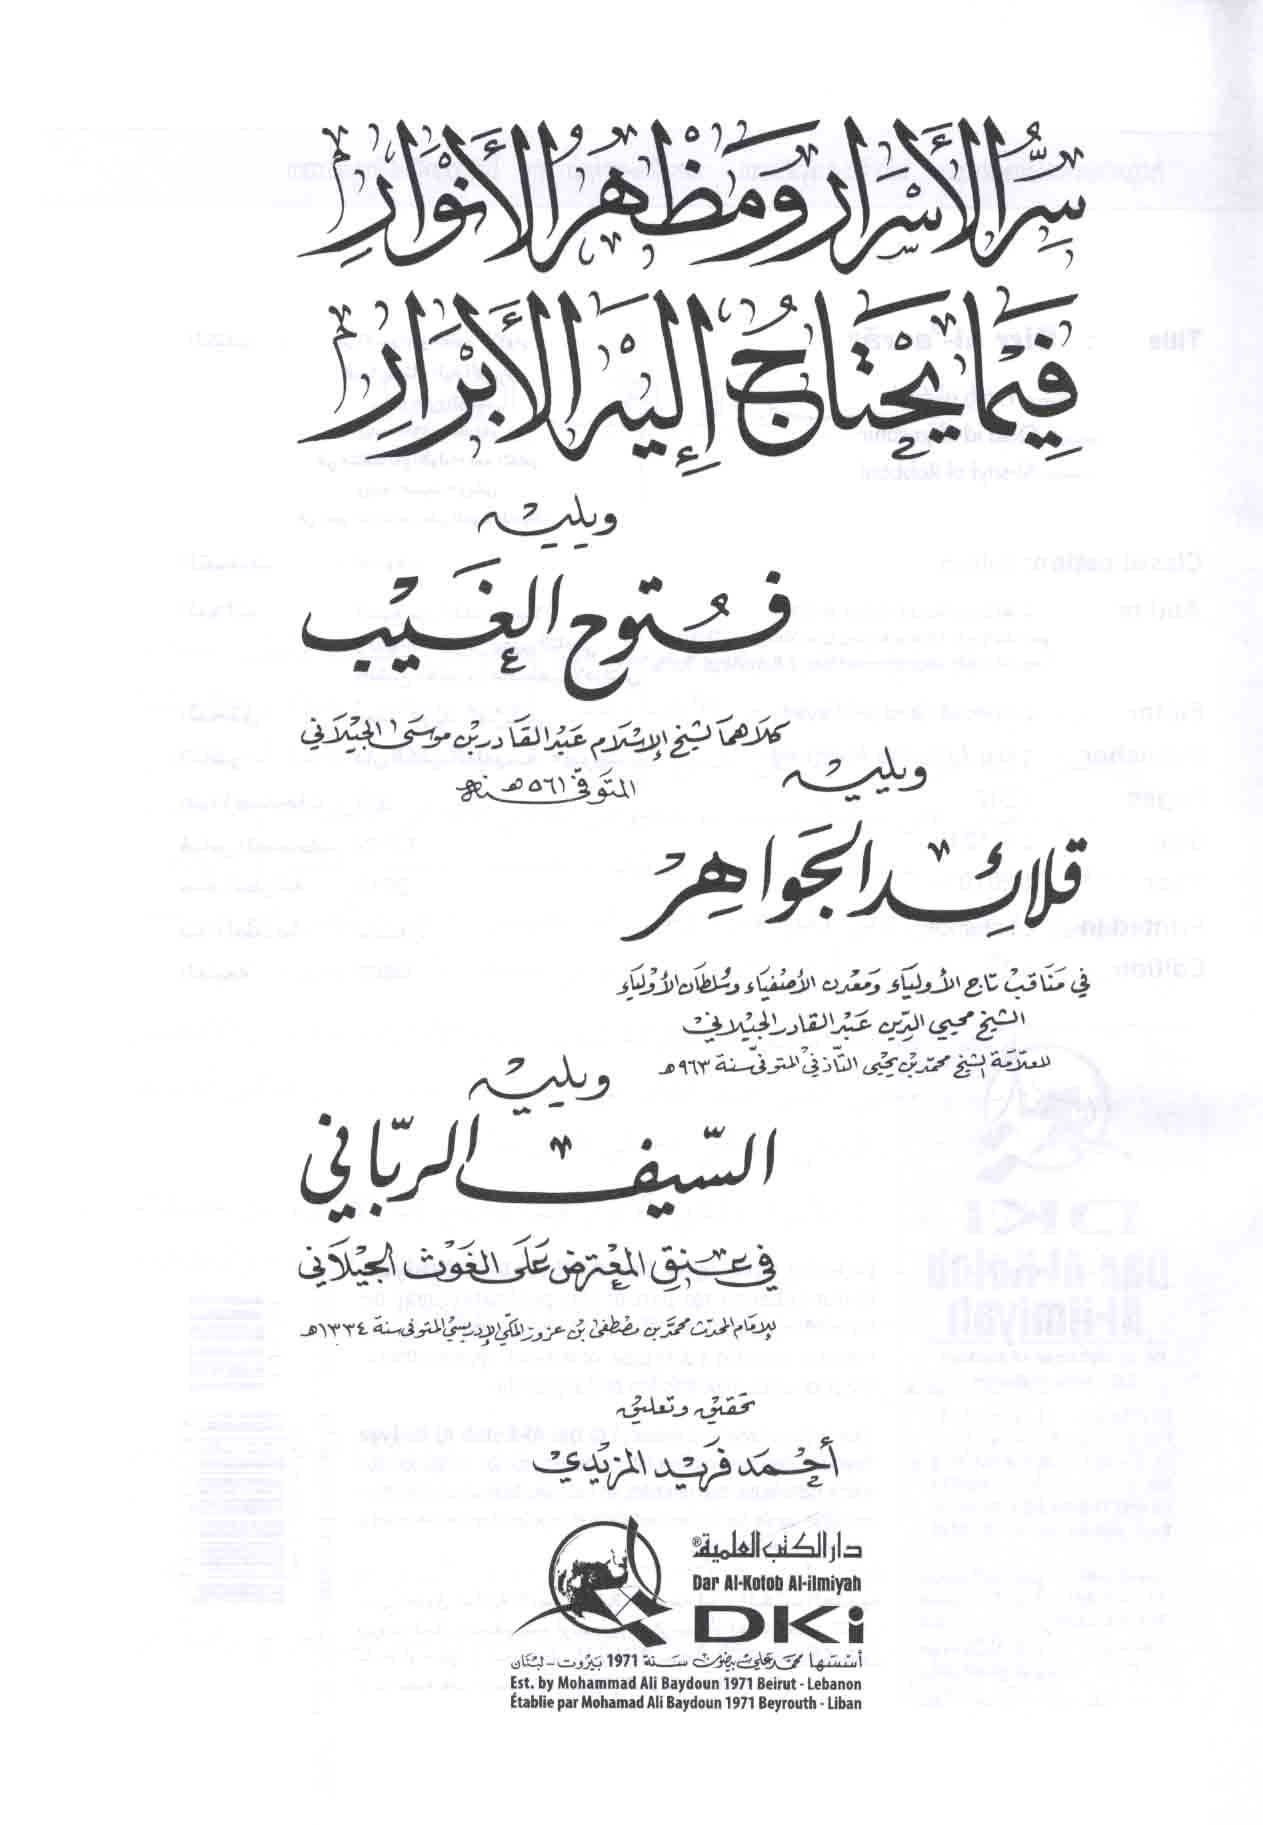 سِرُّ الأَسْرَارِ وَمَظْهَرُ الأَنْوَارِ
فِيمَا يَحْتَاجُ إِلَيْهِ الأَبْرَارُ
ويليه
فُتُوحُ الغَيْبِ
كلاهما لشيخ الإسلام عبد القادر بن موسى الجيلاني
المتوفى ٥٦١ هـ
ويليه
قلائد الجواهر
في مناقب تاج الأولياء ومعدن الأصفياء وسلطان الأولياء
الشيخ محيي الدين عبد القادر الجيلاني
للعلامة الشيخ محمد بن يحيى التاذفي المتوفى سنة ٩٦٣ هـ
ويليه
السيف الرباني
في عنق المعترض على الغوث الجيلاني
للإمام المحدث محمد بن مصطفى بن عزوز المكي الإدريسي المتوفى سنة ١٣٣٤ هـ
تحقيق وتعليق
أحمد فريد المزيدي
دار الكتب العلمية®
Dar Al-Kotob Al-ilmiyah
DKi
أسسها محمد علي بيضون سنة 1971 بيروت - لبنان
Est. by Mohammad Ali Baydoun 1971 Beirut - Lebanon
Établie par Mohamad Ali Baydoun 1971 Beyrouth - Liban